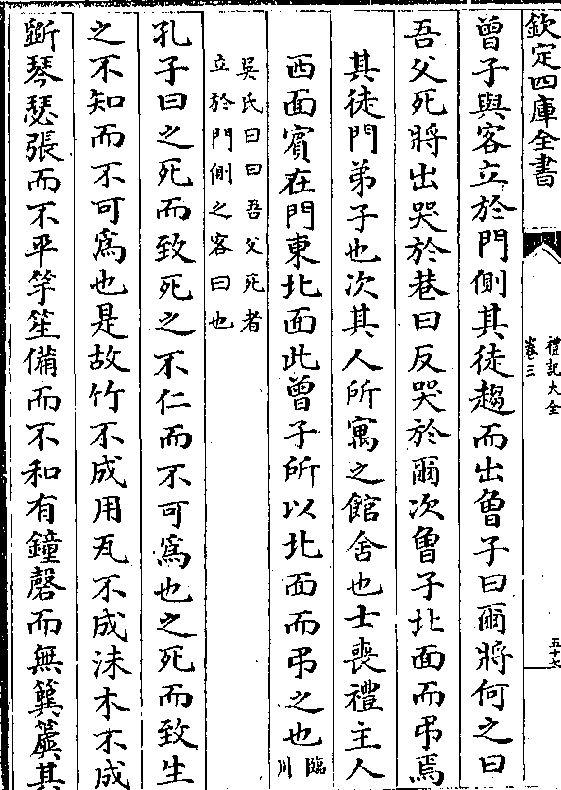 欽定四庫全書
禮記大全
卷三
五十七
曾子與客立於門側其徒趨而出曾子曰爾將何之曰
吾父死將出哭於巷曰反哭於爾次曾子北面而弔焉
其徒門弟子也次其人所寓之館舍也士喪禮主人
西面賓在門東北面此曾子所以北面而弔之也臨川
吳氏曰曰吾父死者
立於門側之客曰也
孔子曰之死而致死之不仁而不可為也之死而致生
之不知而不可為也是故竹不成用瓦不成沬木不成
斲琴瑟張而不平竽笙備而不和有鐘磬而無簨簴其